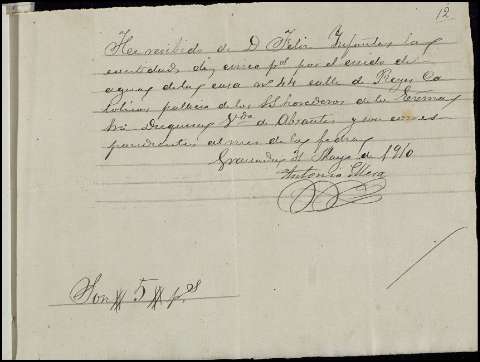 12
He recibido de D Felix Infantes la
cantidad de cinco pts por el cuido de
aguas de la casa nº 44 calle de Reyes Ca
tolicos palacio de los SS herederos de la Exema
Sra Duquesa Vda de Abrantes y son corres
pondientes al mes de la fecha
Granada 31 Mayo de 1910
Antonio
Son # 5 # pts